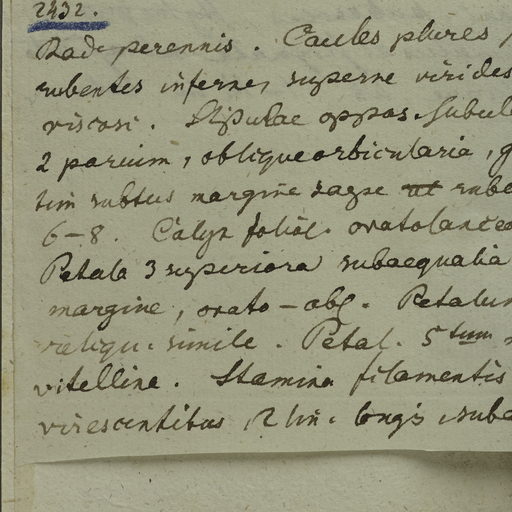 2432.
Rad. perennis. Caules plures
rubentes inferne, superne virides
viscosi. Stipulae oppos. subul
2 parium, oblique orbicularia,
tim subtus margine saepe ut rube
6–8. Calyx foliol. ovatolanceo
Petala 3 superiora subaequalia
margine, ovato–obl. Petalum
reliqu. simile. Petal. 5tum
vitelline. Stamina filamentis
virescentibus, 2 lin. longis, sub